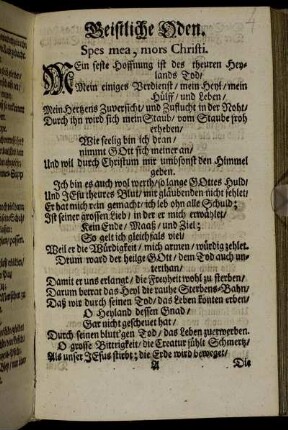 Geistliche Oden.
Spes mea, mors Christi.
MEin feste Hoffnung ist des theuren Hey-
lands Tod/
Mein einiges Verdienst/ mein Heyl/ mein
Hülff/ und Leben/
Mein Hertzens Zuversicht/ und Zuflucht in der Noht/
Durch ihn wird sich mein Staub/ vom Staube froh
erheben/
Wie seelig bin ich dran/
nimmt GOtt sich meiner an/
Und will durch Christum mir umbsonst den Himmel
geben.
Ich bin es auch wol werth/ so lange GOttes Huld/
Und JEsu theures Blut/ mir glaubenden nicht fehlet
Er hat mich rein gemacht/ ich leb ohn alle Schuld;
Ist seiner grossen Lieb/ in der er mich erwählet/
Kein Ende/ Maaß/ und Ziel;
So gelt ich gleichfals viel/
Weil er die Würdigkeit/ mich armen/ würdig zehlet.
Drum ward der heilge GOtt/ dem Tod auch un-
terthan/
Damit er uns erlangt/ die Freyheit wohl zu sterben/
Darum betrat das Heyl die rauhe Sterbens-Bahn/
Daß wir durch seinen Tod/ das Leben konten erben/
O Heyland dessen Gnad/
Gar nicht gescheuet hat/
Durch seinen blut'gen Tod/ das Leben zuerwerben.
O grosse Bittrigkeit/ die Creatur fühlt Schmertz/
Als unser JEsus stirbt; die Erde wird beweget/
A Die